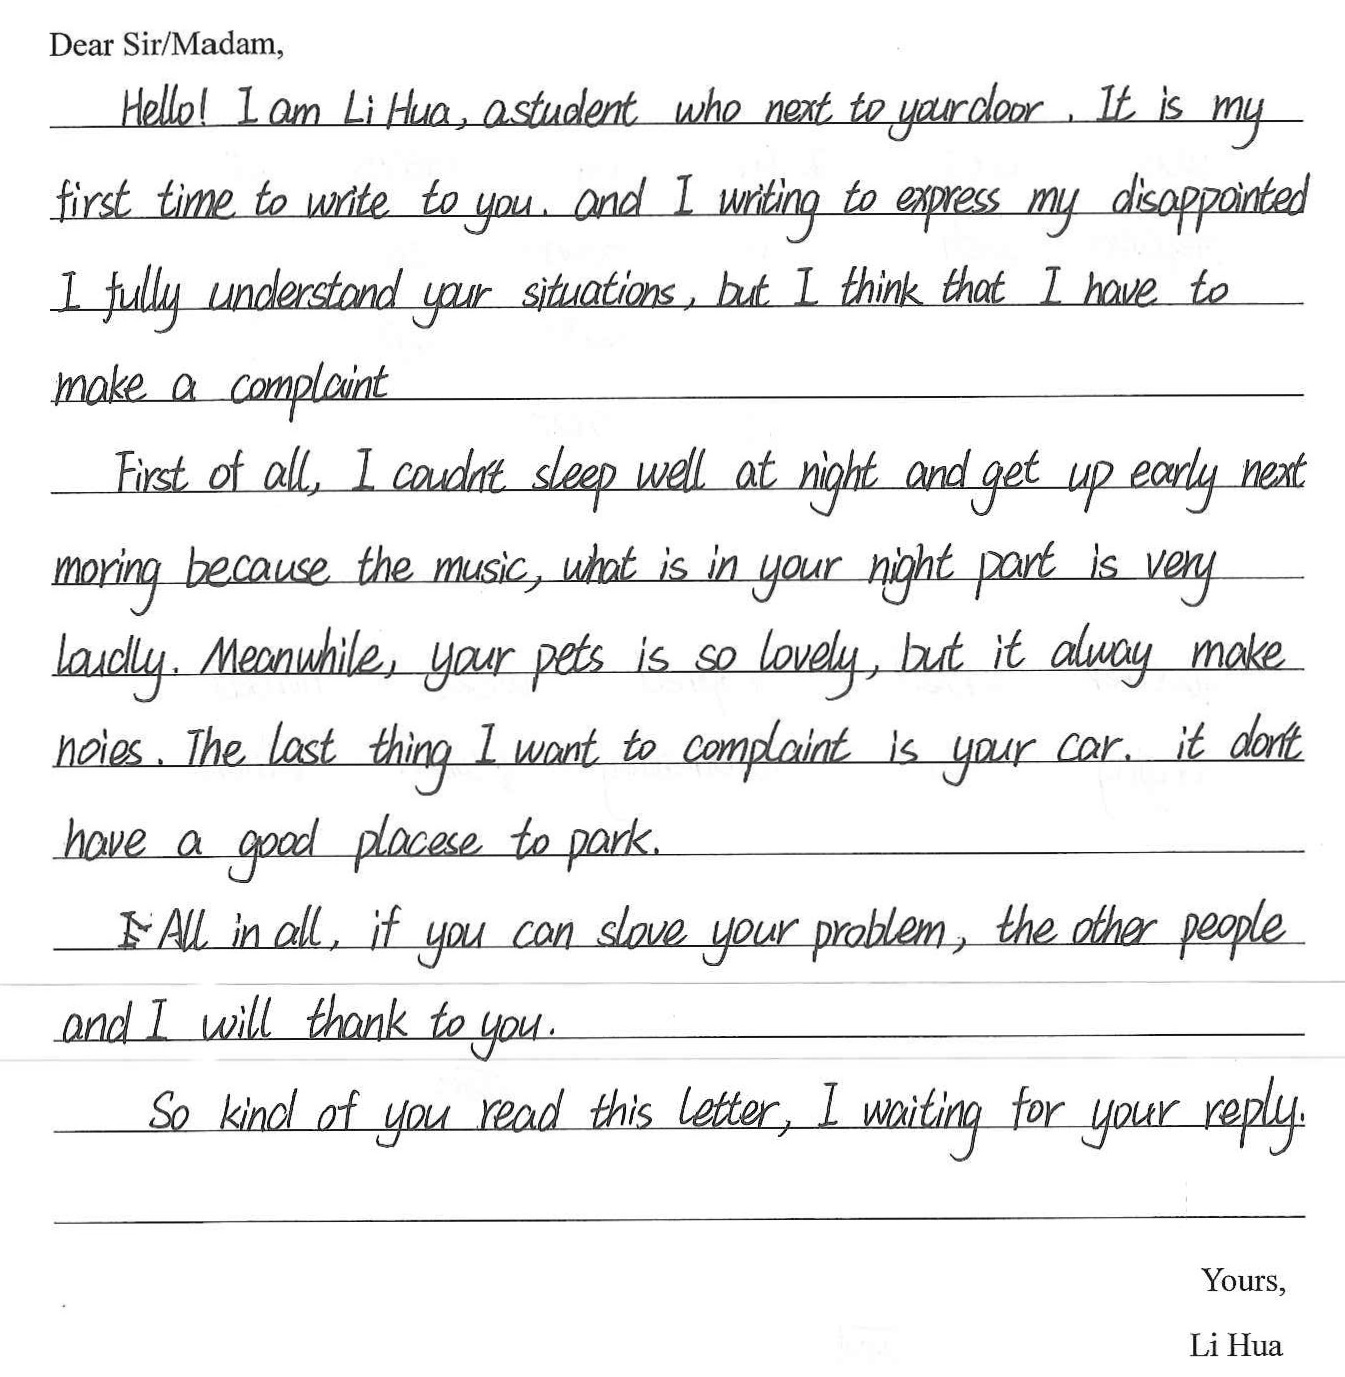 Dear Sir/Madam,
Hello! I am Li Hua, a student who next to your door. It is my
first time to write to you. and I writing to express my disappointed
I fully understand your situations, but I think that I have to
make a complaint
First of all, I coudn't sleep well at night and get up early next
moring because the music, what is in your night part is very
loudly. Meanwhile, your pets is so lovely, but it alway make
noies. The last thing I want to complaint is your car. it don't
have a good placese to park.
All in all, if you can slove your problem, the other people
and I will thank to you.
So kind of you read this letter, I waiting for your reply.
Yours,
Li Hua